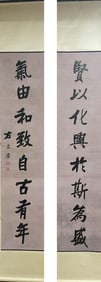 賢以化興於斯為盛
氣由和致自古有年